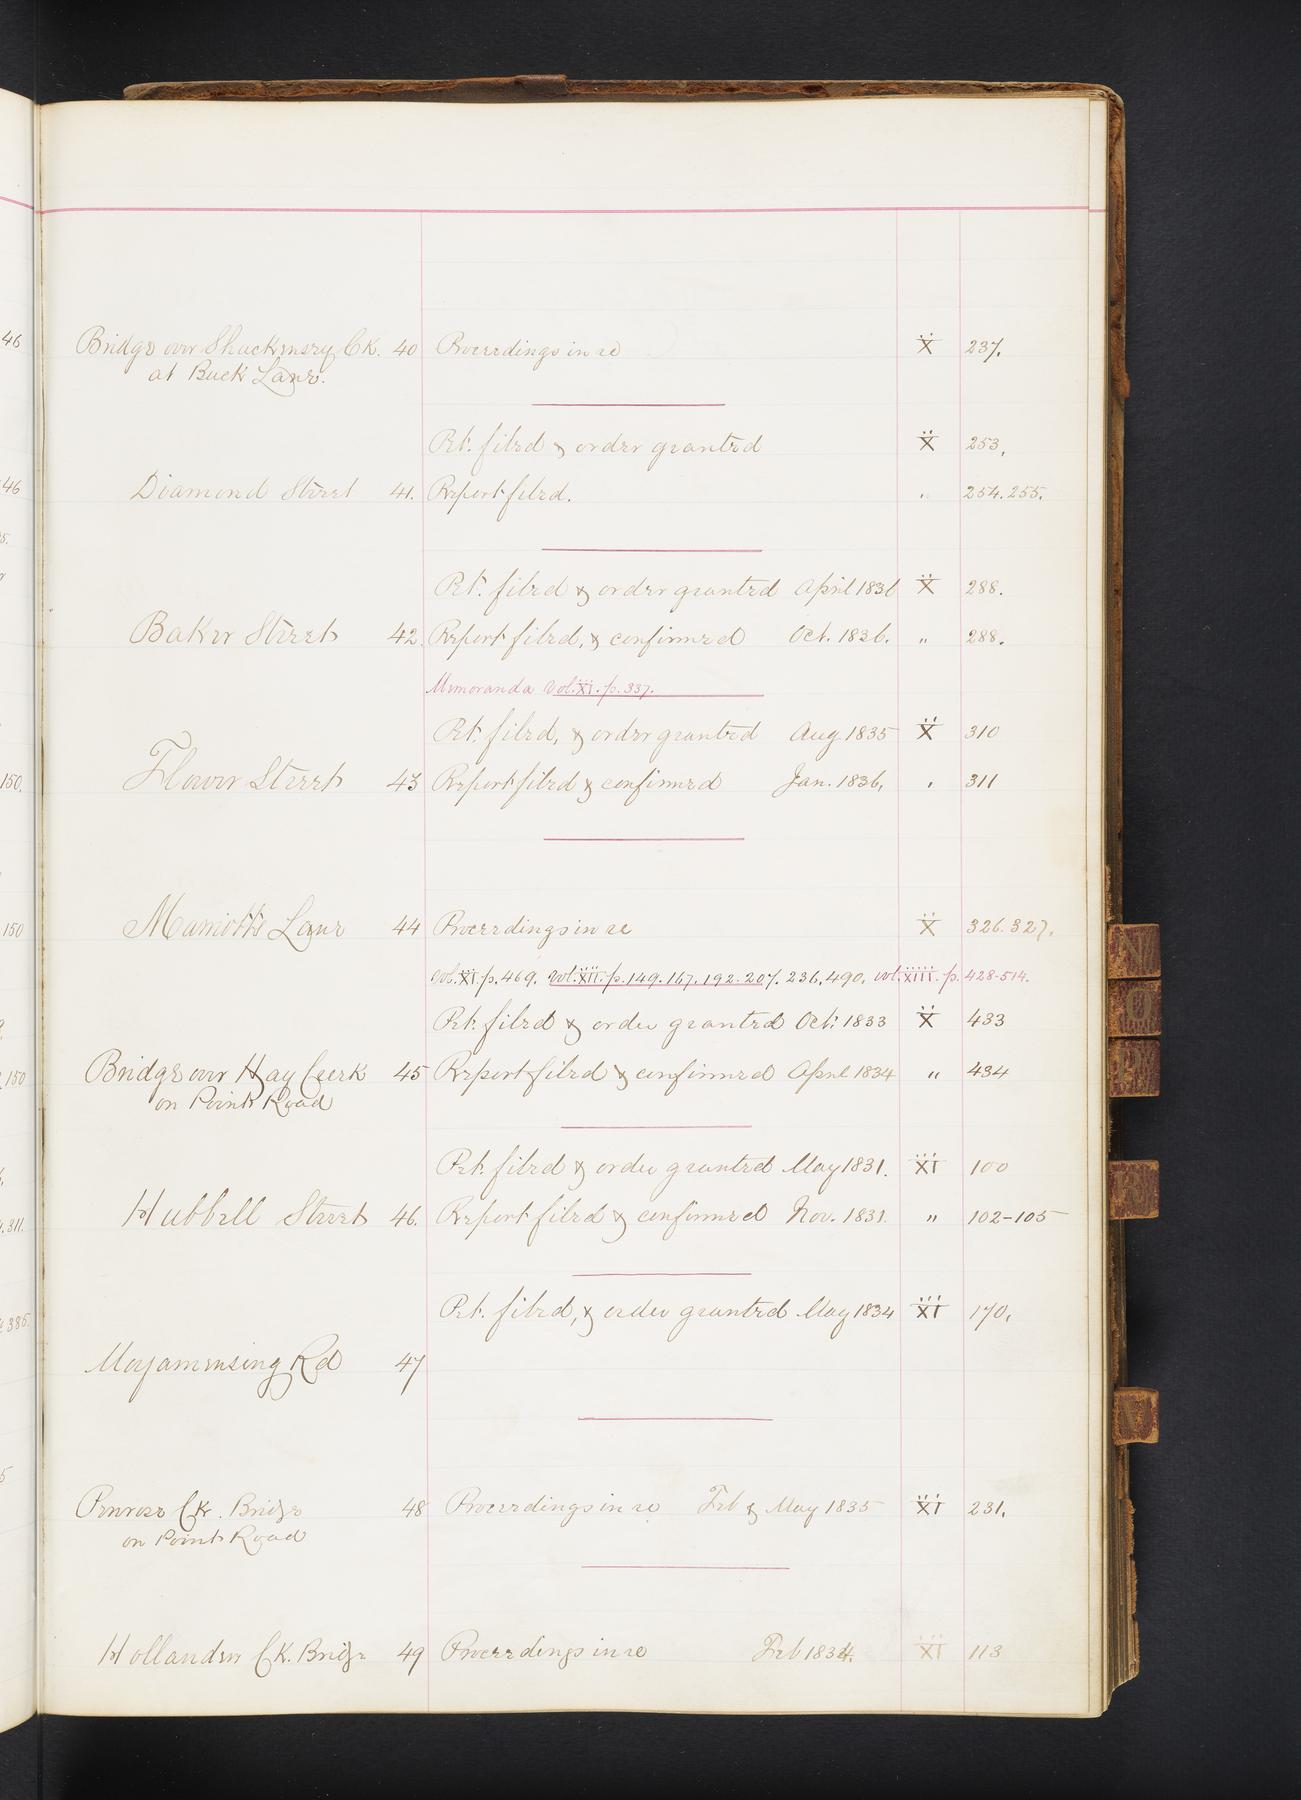 46
Bridge over Shackmsey Ck. 40 Proceedings in re X 237.
at Buck Lane.
Pet. filed & order granted X 253,
46
Diamond Street 41. Report filed. " 254. 255.
5.
Pet. filed & order granted April 1836 X 288.
Baker Street 42. Report filed, & confirmed Oct. 1836. " 288.
Memoranda Vol. XI. p. 337.
Pet. filed, & order granted Aug. 1835 X 310
150, Flower Street 43 Report filed & confirmed Jan. 1836, " 311
150 Marriott's Lane 44 Proceedings in re X 326. 327.
Vol. XI. p. 469. Vol. XII. p. 149. 167. 192. 207. 236, 490. Vol. XIII. p. 428-514.
Pet. filed & order granted Oct. 1833 X 433
150 Bridge over Hay Creek 45 Report filed & confirmed April 1834 " 434
on Point Road
Pet. filed & order granted May 1831. XI 100
311. Hubbell Street 46. Report filed & confirmed Nov. 1831. " 102-105
Pet. filed, & order granted May 1834 XI 170,
385.
Moyamensing Rd 47
5
Penrose Ck. Bridge 48 Proceedings in re Feb & May 1835 XI 231,
on Point Road
Hollander Ck. Bridge 49 Proceedings in re Feb 1834. XI 113
N
O
R
V